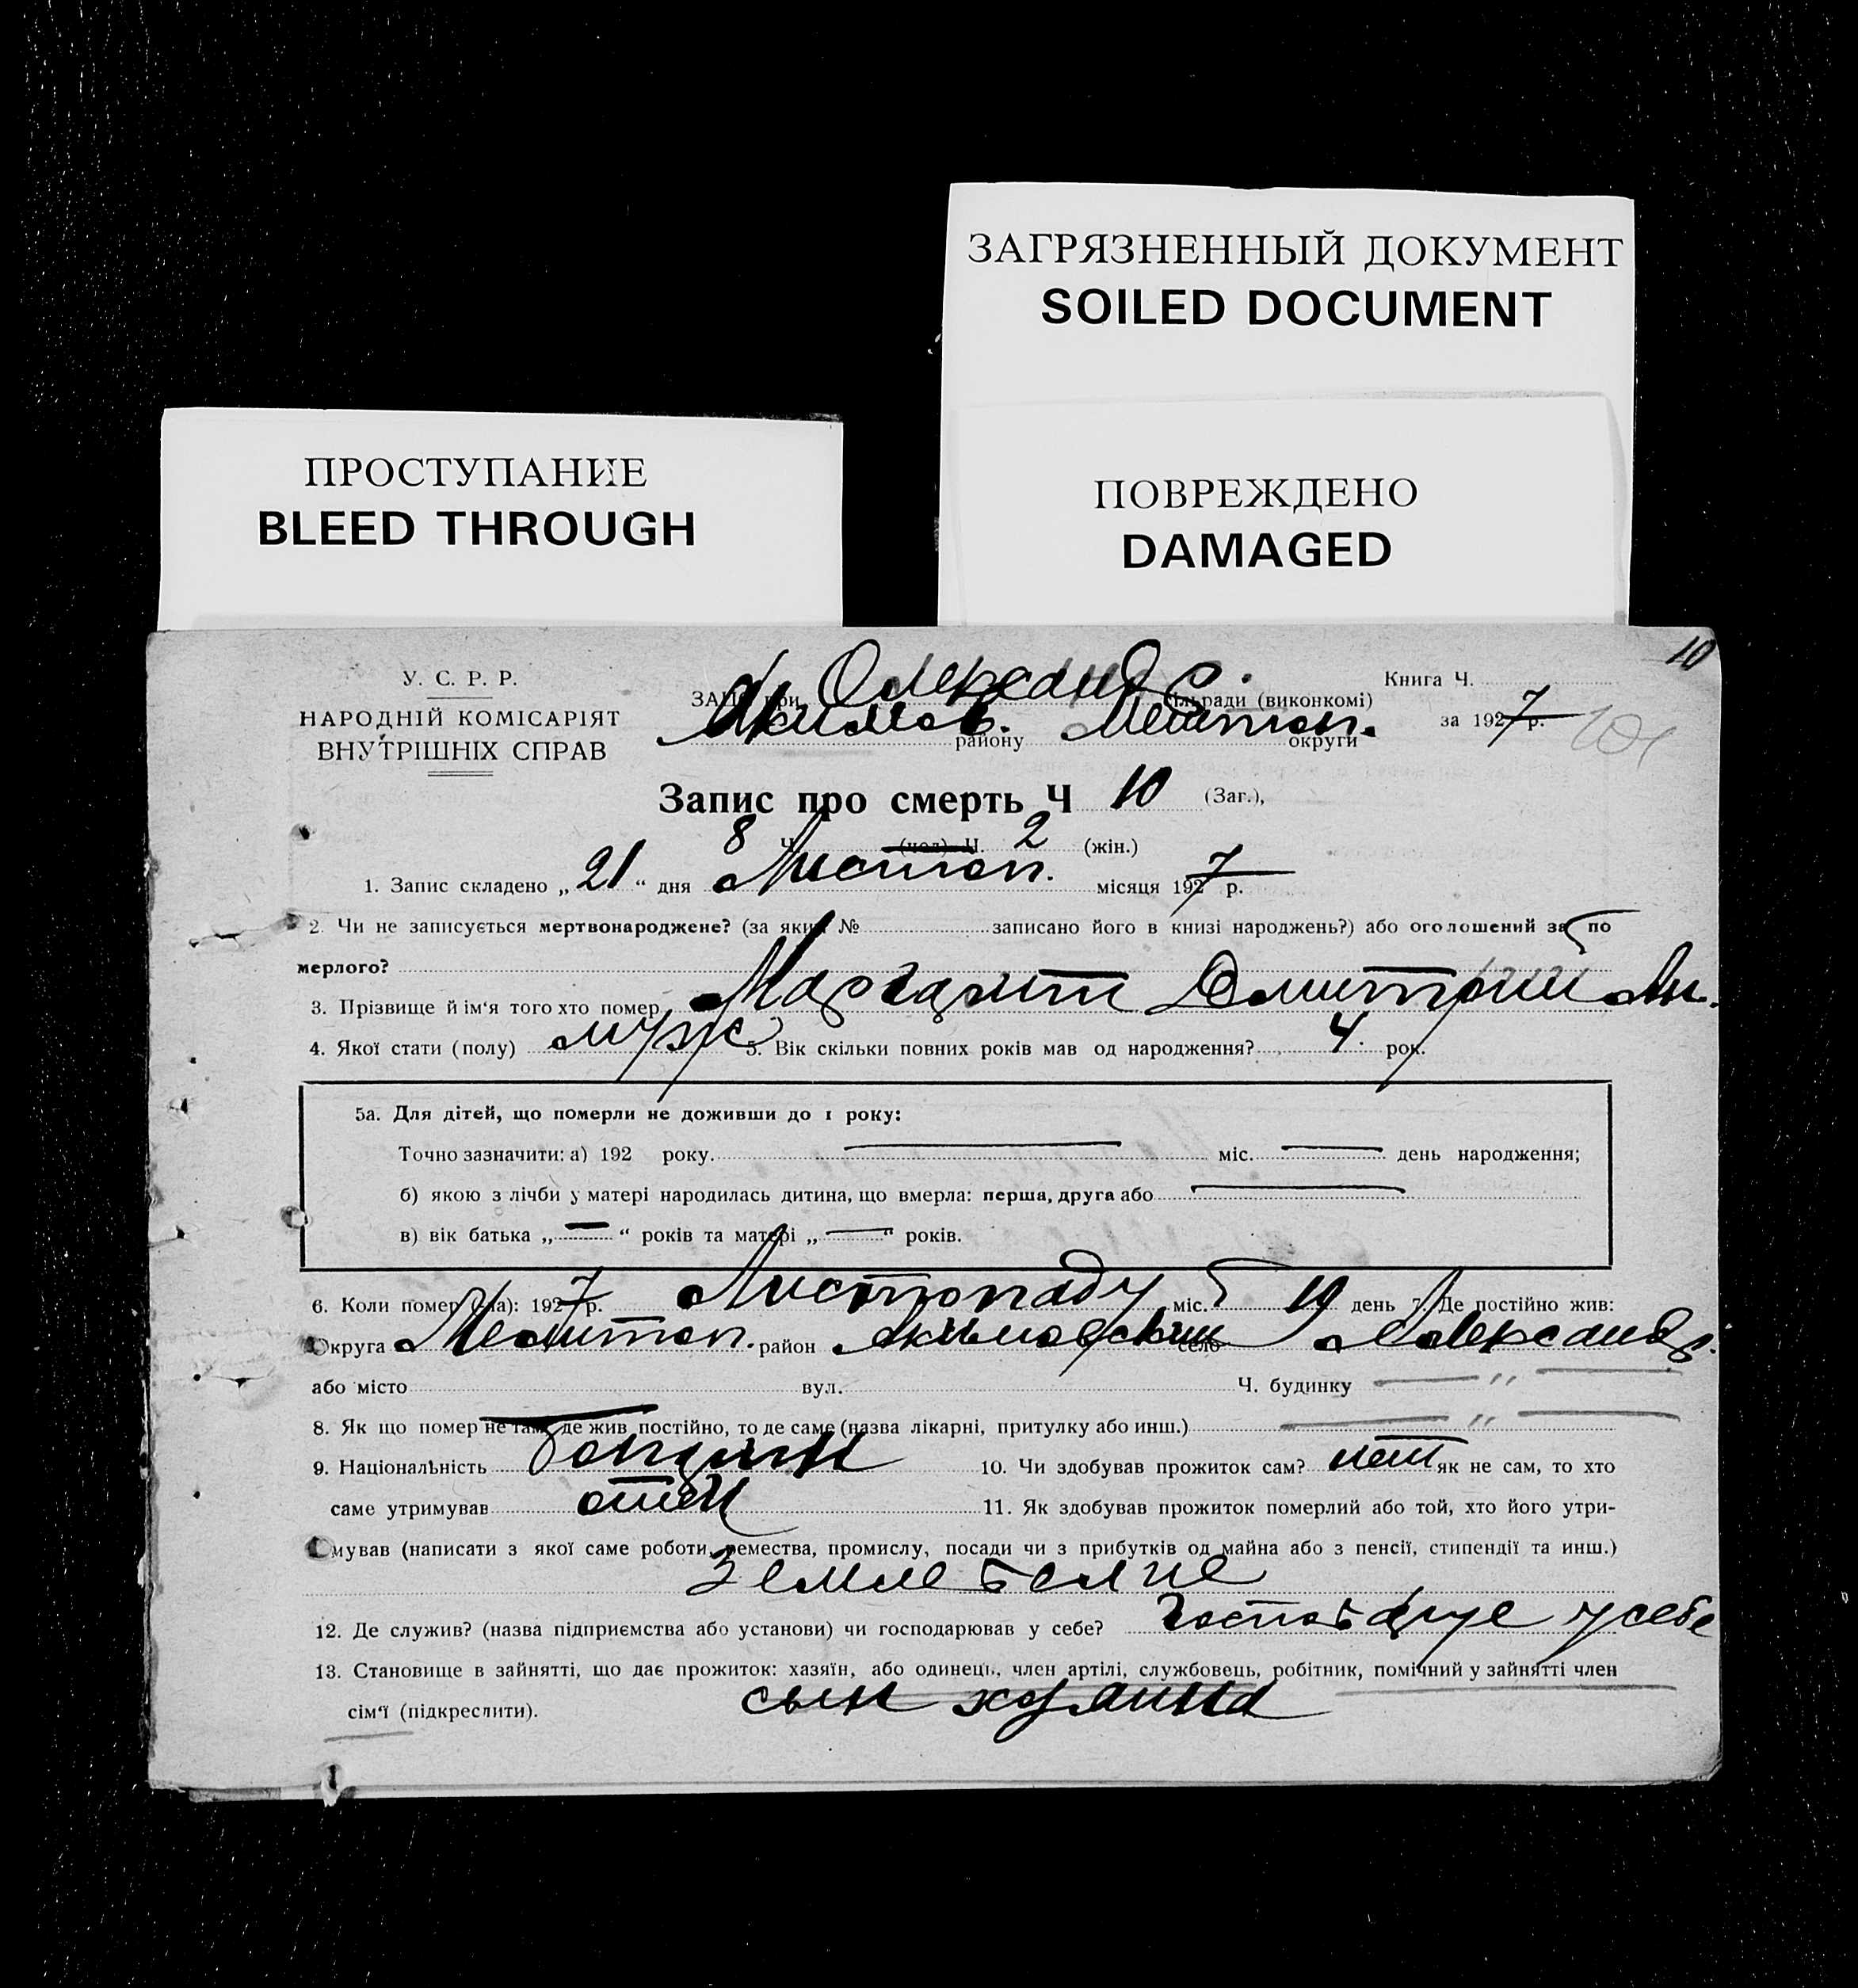 ЗАГРЯЗНЕННЫЙ ДОКУМЕНТ
SOILED DOCUMENT
ПРОСТУПАНИЕ
BLEED THROUGH
ПОВРЕЖДЕНО
DAMAGED
10
У. С. Р. Р.
НАРОДНІЙ КОМІСАРІЯТ
ВНУТРІШНІХ СПРАВ
ЗАГС при Олександ. сільради (виконкомі)
Акимов. району Мелітоп. округи
Книга Ч.
за 1927 р.
Запис про смерть Ч 10 (Заг.),
8 Ч. (чол) Ч. 2 (жін.)
1. Запис складено „21“ дня Листоп. місяця 1927 р.
2. Чи не записується мертвонароджене? (за яким № записано його в книзі народжень?) або оголошений за по
мерлого?
3. Прізвище й ім'я того хто помер Маргарит Дмитрий Ан.
4. Якої стати (полу) муж 5. Вік скільки повних років мав од народження? 4. рок.
5а. Для дітей, що померли не доживши до 1 року:
Точно зазначити: а) 192 року. міс. день народження;
б) якою з лічби у матері народилась дитина, що вмерла: перша, друга або
в) вік батька „ “ років та матері „ “ років.
6. Коли помер (ла): 1927 р. Листопаду міс. 19 день 7. Де постійно жив:
Округа Мелитоп. район Акимовский село Александр.
або місто вул. Ч. будинку — „ —
8. Як що помер не там, де жив постійно, то де саме (назва лікарні, притулку або инш.) — „ —
9. Національність болгарин 10. Чи здобував прожиток сам? нет як не сам, то хто
саме утримував отец 11. Як здобував прожиток померлий або той, хто його утри-
мував (написати з якої саме роботи, ремества, промислу, посади чи з прибутків од майна або з пенсії, стипендії та инш.)
12. Де служив? (назва підприємства або установи) чи господарював у себе? господарує у себе
13. Становище в зайнятті, що дає прожиток: хазяїн, або одинець, член артілі, службовець, робітник, помічний у зайнятті член
сім'ї (підкреслити). сын хозяина